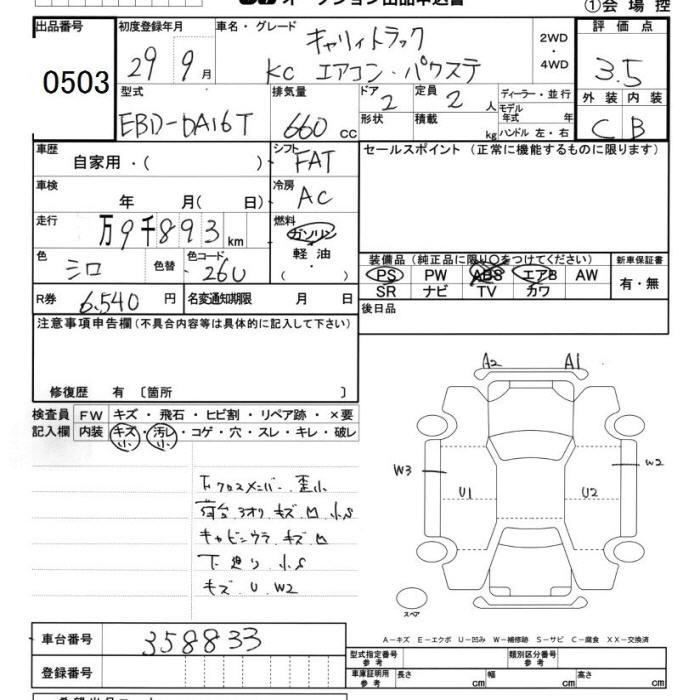 オークション出品申込書
①会場控
出品番号 初度登録年月 車名・グレード 評価点
0503 29 9月 キャリイトラック 2WD・4WD 3.5
KC エアコン・パワステ
型式 排気量 ドア 2 定員 2人 ディーラー・並行 外装 内装
EBD-DA16T 660cc 形状 積載 kg モデル年式 年 C B
ハンドル 左・右
車歴 自家用・( ) シフト FAT セールスポイント (正常に機能するものに限ります)
車検 年 月( 日) 冷房 AC
走行 万9千893km 燃料 ガソリン
軽油・( )
色 シロ 色替 色コード 26U
装備品 (純正品に限り〇をつけてください) 新車保証書
PS PW ABS エアB AW 有・無
SR ナビ TV カワ
R券 6,540円 名変通知期限 月 日 後日品
注意事項申告欄(不具合内容等は具体的に記入して下さい)
修復歴 有 〔箇所 〕
検査員 FW キズ・飛石・ヒビ割・リペア跡・×要
記入欄 内装 キズ小・汚レ小・コゲ・穴・スレ・キレ・破レ
A2 A1
W3 W2
U1 U2
下クロスメンバー 歪小
荷台 3オリ キズ 凹 小S
キャビンウラ キズ 凹
下廻り 小S
キズ U W2
スペア
車台番号 358833
登録番号
A-キズ E-エクボ U-凹み W-補修跡 S-サビ C-腐食 XX-交換済
型式指定番号 参考 類別区分番号 参考
車庫証明用 参考 長さ cm 幅 cm 高さ cm